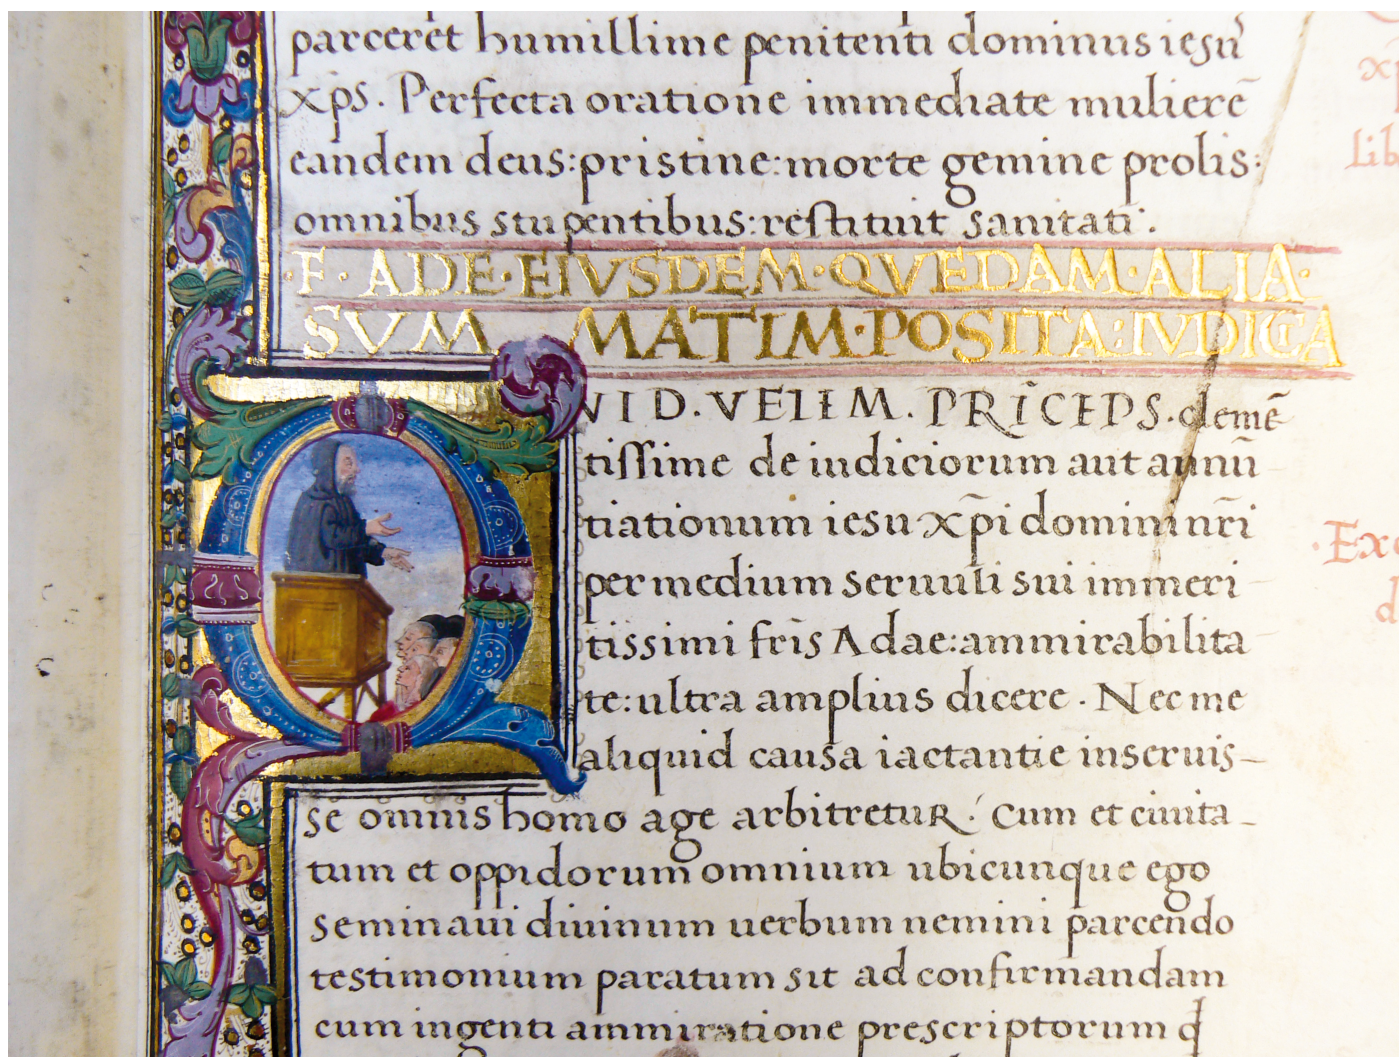 parceret humillime penitenti dominus iesu
xp̄s. Perfecta oratione immediate mulierē
eandem deus:pristine:morte gemine prolis:
omnibus stupentibus:restituit sanitati.
·F·ADE·EIVSDEM·QVEDAM·ALIA·
SVM MATIM·POSITA:IVDICIA
QVID.VELIM.PRĪCEPS.clemē
tissime de iudiciorum aut annū
tiationum iesu xp̄i domini nr̄i
per medium seruuli sui immeri
tissimi fr̄is Adae:ammirabilita
te:ultra amplius dicere. Nec me
aliquid causa iactantie inseruis–
se omnis homo age arbitretur: Cum et ciuita–
tum et oppidorum omnium ubicunque ego
seminaui diuinum uerbum nemini parcendo
testimonium paratum sit ad confirmandam
cum ingenti ammiratione prescriptorum